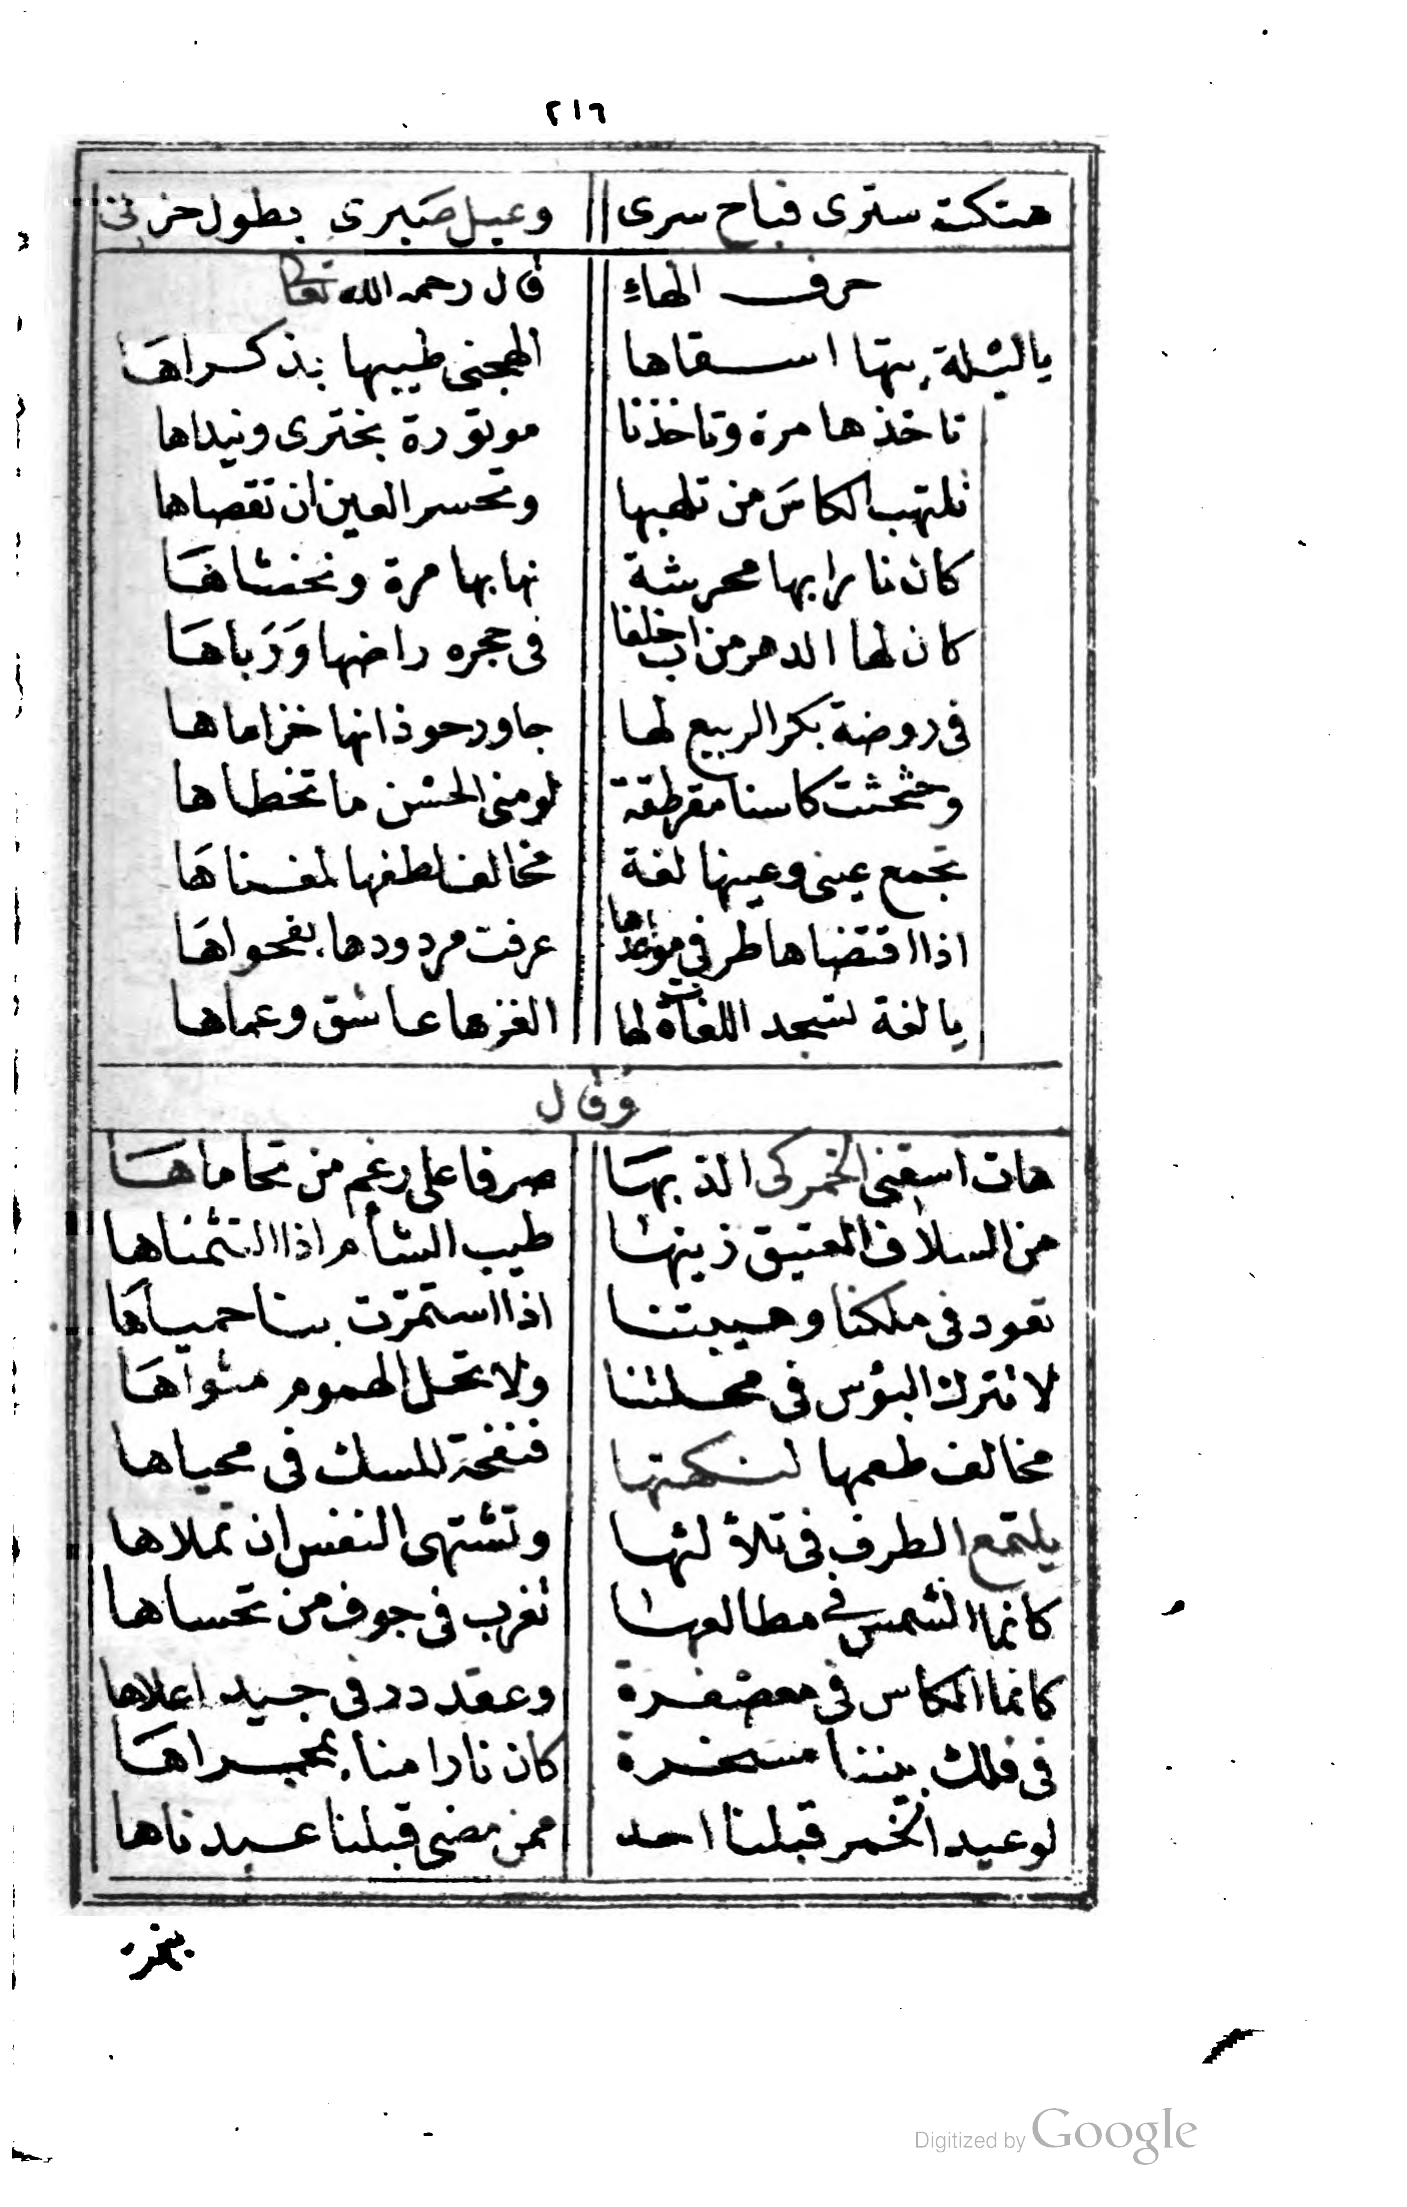 ٢١٦
هتكت سترى فباح سرى وعيل صبرى بطول حزنى
حرف الهاء قال رحمه الله تعالى
يا ليلة بتها اسقاها الهجنى طيبها بذكراها
تاخذها مرة وتاخذنا موتورة بخترى ونيداها
تلتهب الكاسَ من تلهبها وتحسر العين ان تقصاها
كان نارا بها محرشة نهابها مرة ونخشاها
كان لها الدهر من اب خلفا فى حجره راضها وَرَباها
فى روضة بكر الربيع لها جاور حوذانها خزاماها
وحثحثت كاسنا مقرطقة لو منى الحسن ما تخطاها
تجمع عينى وعينها لغة مخالف لطفها لمغناهَا
اذا اقتضاها طرفى مواعدها عرفت مردودها بفحواهَا
يا لغة تسجد اللغات لها الغزها عاشق وعماها
وقال
هات اسقنى الخمر كى الذ بها صرفا على رغم من تحاماها
من السلاف العتيق زينها طيب الشأم اذا التثمناها
تعود فى ملكنا وهيبتنا اذا استمرّت بنا حمياها
لا تترك البؤس فى محلتنا ولا تحل الهموم مثواها
مخالف طعمها لنكهتها فنفحة المسك فى محياها
يلتمع الطرف فى تلألئها وتشتهى النفس ان تملاها
كانما الشمس فى مطالعها تغرب فى جوف من تحساها
كانما الكاس فى معصفرة وعقد در فى جيد اعلاها
فى فلك بيننا مسخرة كان نارا منا بمجراها
لو عبد الخمر قبلنا احد ممن مضى قبلنا عبدناها
Digitized by Google